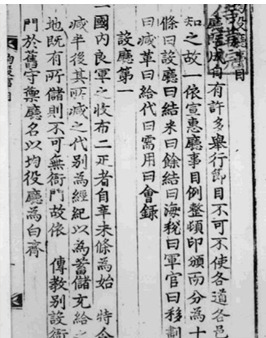 廳事目
有許多舉行節目不可不使各道各邑
知之故一依宣惠廳事目例整頓印頒而分為十
條曰設廳曰結米曰餘結曰海稅曰軍官曰移劃
曰減革曰給代曰需用曰會錄
設廳第一
一國內良軍之收布二疋者自辛未條為始 特令
減半後其所減之代別為經紀以為蓄儲充給之
地既有所儲則不可無衙門故依 傳教別設衙
門於舊守禦廳名以均役廳為白齊